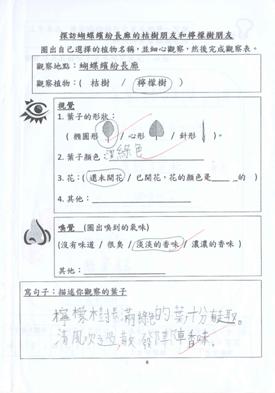 探訪蝴蝶繽紛長廊的桔樹朋友和檸檬樹朋友
圈出自己選擇的植物名稱,並細心觀察,然後完成觀察表。
觀察地點:蝴蝶繽紛長廊
觀察植物:( 桔樹 / 檸檬樹 )
視覺
1. 葉子的形狀:
( 橢圓形 / 心形 / 針形 )。
2. 葉子顏色:深綠色
3. 花:( 還未開花 / 已開花,花的顏色是____的 )
4. 其他:
嗅覺 (圈出嗅到的氣味)
(沒有味道 / 很臭 / 淡淡的香味 / 濃濃的香味)
其他:
寫句子:描述你觀察的葉子
檸檬樹長滿綠色的葉,十分
清風吹過,散發陣陣香味。
6